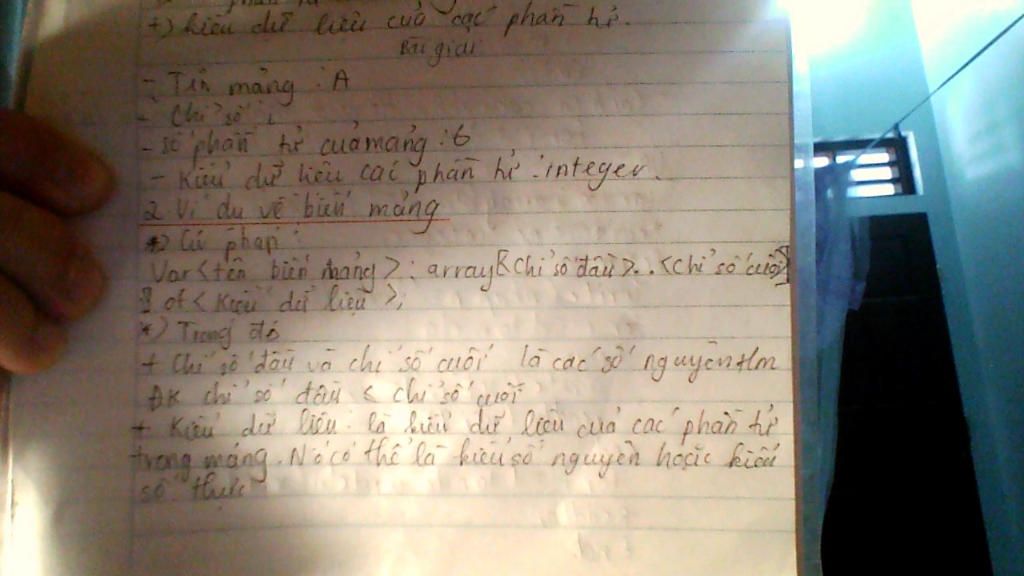 +) kiểu dữ liệu của các phần tử.
Bài giải
- Tên mảng : A
- Chỉ số i
- số phần tử của mảng : 6
- Kiểu dữ liệu các phần tử : integer.
2. Ví dụ về biến mảng
*) Cú pháp :
Var <tên biến mảng> : array [<chỉ số đầu> .. <chỉ số cuối>
] of < Kiểu dữ liệu >;
*) Trong đó
+ Chỉ số đầu và chỉ số cuối là các số nguyên t/m
ĐK chỉ số đầu ≤ chỉ số cuối
+ Kiểu dữ liệu là kiểu dữ liệu của các phần tử
trong mảng. Nó có thể là kiểu số nguyên hoặc kiểu
số thực